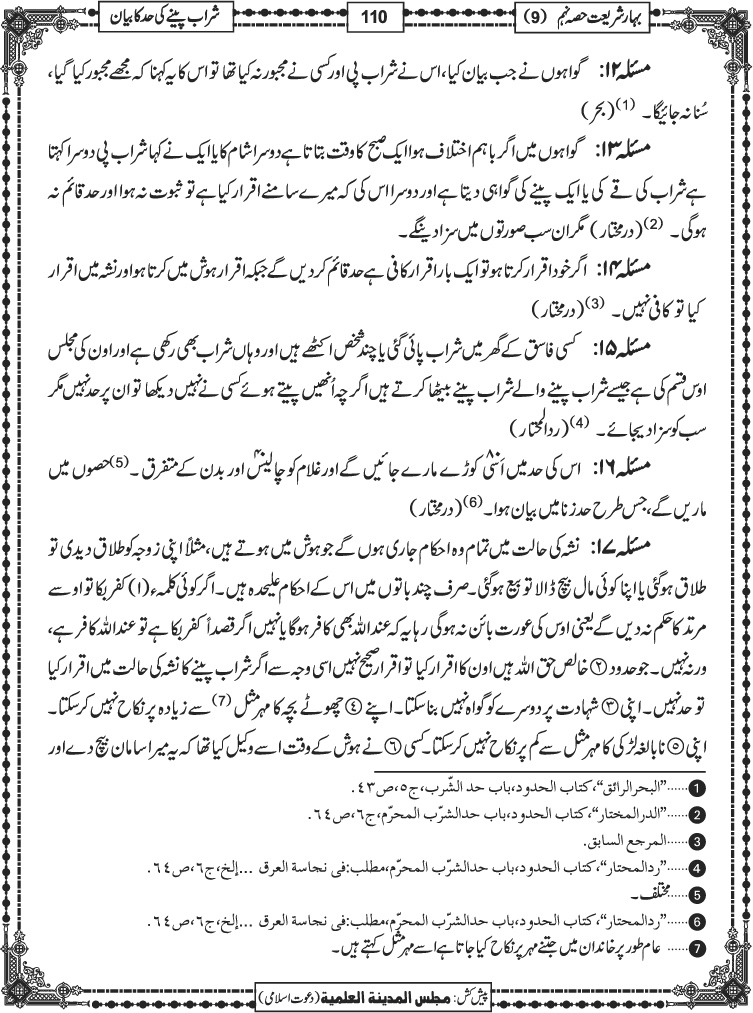 بہار شریعت حصہ نہم (9)
110
شراب پینے کی حد کا بیان
مسئلہ ۱۲: گواہوں نے جب بیان کیا، اس نے شراب پی اور کسی نے مجبور نہ کیا تھا تو اس کا یہ کہنا کہ مجھے مجبور کیا گیا،
سُنا نہ جائیگا۔ (1) (بحر)
مسئلہ ۱۳: گواہوں میں اگر باہم اختلاف ہوا ایک صبح کا وقت بتاتا ہے دوسرا شام کا یا ایک نے کہا شراب پی دوسرا کہتا
ہے شراب کی قے کی یا ایک پینے کی گواہی دیتا ہے اور دوسرا اس کی کہ میرے سامنے اقرار کیا ہے تو ثبوت نہ ہوا اور حد قائم نہ
ہوگی۔ (2) (درمختار) مگر ان سب صورتوں میں سزا دینگے۔
مسئلہ ۱۴: اگر خود اقرار کرتا ہو تو ایک بار اقرار کافی ہے حد قائم کردیں گے جبکہ اقرار ہوش میں کرتا ہو اور نشہ میں اقرار
کیا تو کافی نہیں۔ (3) (درمختار)
مسئلہ ۱۵: کسی فاسق کے گھر میں شراب پائی گئی یا چند شخص اکٹھے ہیں اور وہاں شراب بھی رکھی ہے اور اون کی مجلس
اوس قسم کی ہے جیسے شراب پینے والے شراب پینے بیٹھا کرتے ہیں اگرچہ اُنھیں پیتے ہوئے کسی نے نہیں دیکھا تو ان پر حد نہیں مگر
سب کو سزا دیجائے۔ (4) (ردالمحتار)
مسئلہ ۱۶: اس کی حد میں اَسّی ۸۰ کوڑے مارے جائیں گے اور غلام کو چالیس ۴۰ اور بدن کے متفرق۔ (5) حصوں میں
ماریں گے، جس طرح حد زنا میں بیان ہوا۔ (6) (درمختار)
مسئلہ ۱۷: نشہ کی حالت میں تمام وہ احکام جاری ہوں گے جو ہوش میں ہوتے ہیں، مثلاً اپنی زوجہ کو طلاق دیدی تو
طلاق ہوگئی یا اپنا کوئی مال بیچ ڈالا تو بیع ہوگئی۔ صرف چند باتوں میں اس کے احکام علیحدہ ہیں۔ اگر کوئی کلمہ (۱) کفر بکا تو اوسے
مرتد کا حکم نہ دیں گے یعنی اوس کی عورت بائن نہ ہوگی رہا یہ کہ عنداللہ بھی کافر ہوگا یا نہیں اگر قصداً کفر بکا ہے تو عنداللہ کافر ہے،
ورنہ نہیں۔ جو حدود ② خالص حق اللہ ہیں اون کا اقرار کیا تو اقرار صحیح نہیں اسی وجہ سے اگر شراب پینے کا نشہ کی حالت میں اقرار کیا
تو حد نہیں۔ اپنی ③ شہادت پر دوسرے کو گواہ نہیں بنا سکتا۔ اپنے ④ چھوٹے بچہ کا مہر مثل (7) سے زیادہ پر نکاح نہیں کرسکتا۔
اپنی ⑤ نابالغہ لڑکی کا مہر مثل سے کم پر نکاح نہیں کرسکتا۔ کسی ⑥ نے ہوش کے وقت اسے وکیل کیا تھا کہ یہ میرا سامان بیچ دے اور
1 ......"البحرالرائق"، کتاب الحدود،باب حد الشّرب،ج٥،ص٤٣.
2 ......"الدرالمختار"، کتاب الحدود،باب حدالشرّب المحرّم،ج٦،ص٦٤.
3 ......المرجع السابق.
4 ......"ردالمحتار"، کتاب الحدود، باب حدالشرّب المحرّم،مطلب:فی نجاسة العرق ...إلخ،ج٦،ص٦٤.
5 ......مختلف۔
6 ......"ردالمحتار"، کتاب الحدود، باب حدالشرّب المحرّم،مطلب:فی نجاسة العرق ...إلخ،ج٦،ص٦٤.
7 ......عام طور پر خاندان میں جتنے مہر پر نکاح کیا جاتا ہے اسے مہر مثل کہتے ہیں۔
پیش کش: مجلس المدینة العلمیة (دعوت اسلامی)